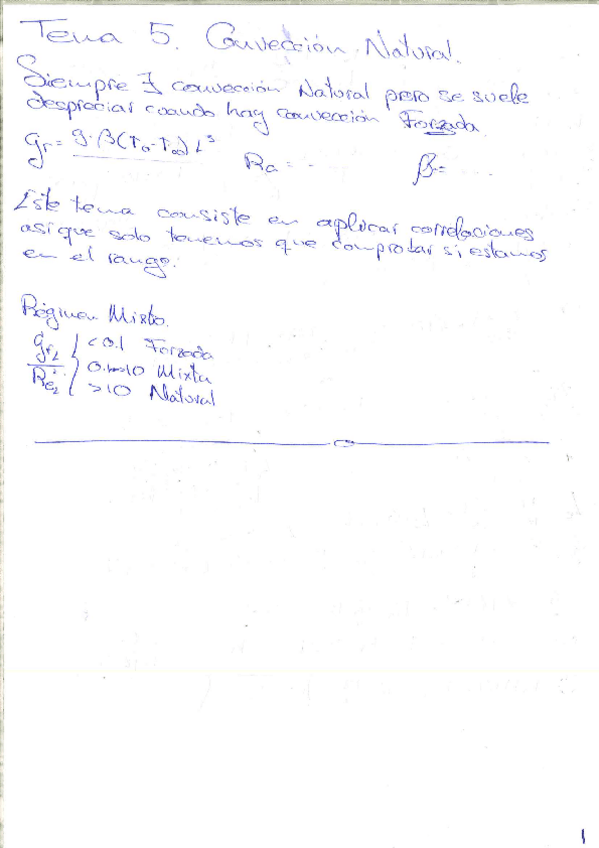 Tema 5. Convección Natural.
Siempre ∃ convección Natural pero se suele
despreciar cuando hay convección Forzada
Gr = g·β(To-T∞)L³ Ra = .. β = ...
Este tema consiste en aplicar correlaciones
así que solo tenemos que comprobar si estamos
en el rango.
Régimen Mixto.
Gr_L / Re_L² { <0.1 Forzada
0.1-10 Mixta
>10 Natural
1